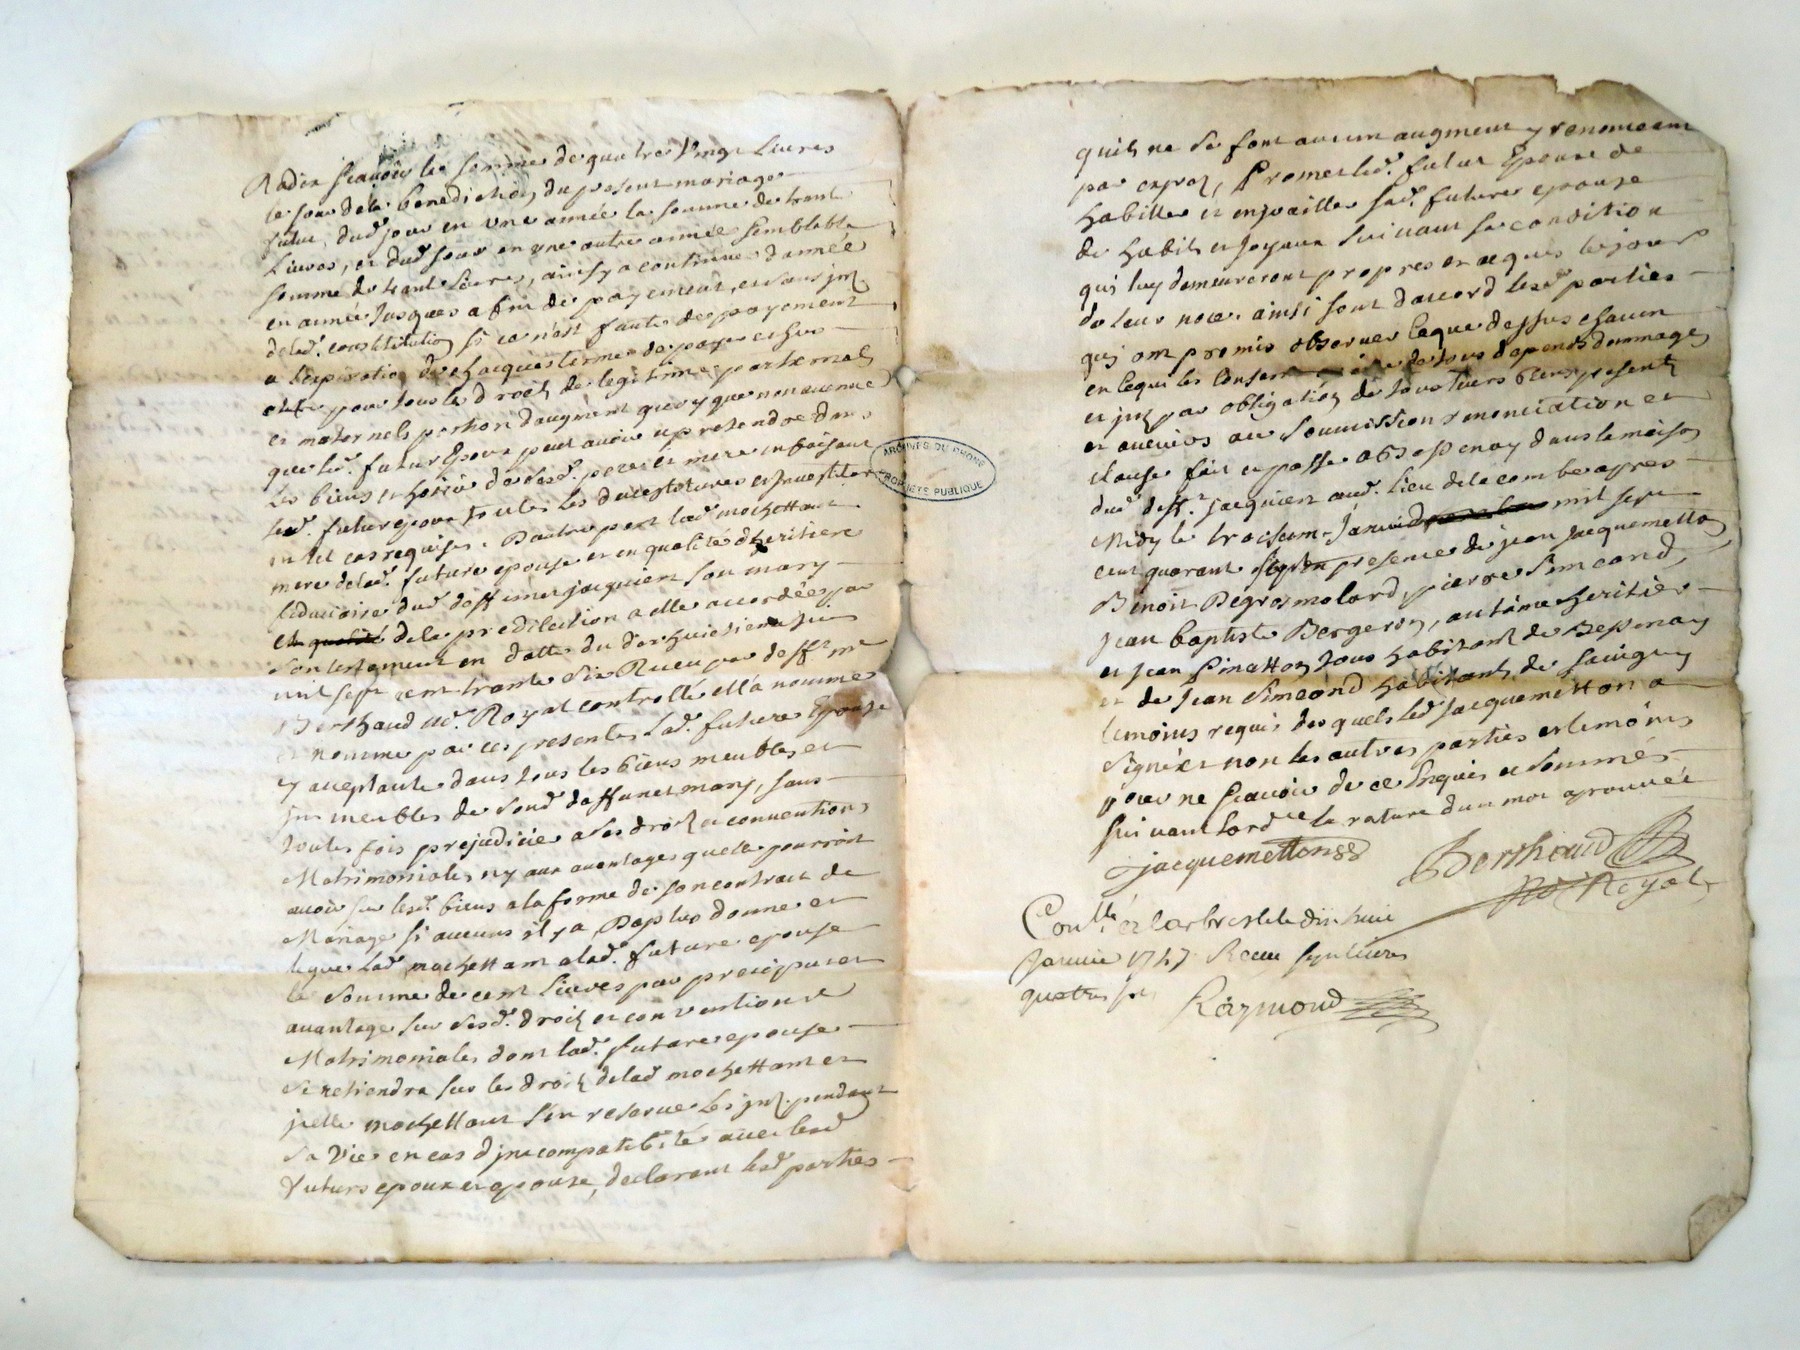 Radix scavoir la somme de quatre Vingt Livres
le jour de la benediction du present mariage
futur, dud. jour en une année la somme de trent
Livres, et dud jour en une autre année semblable
somme de trant Livres, ainsy a continuer d'année
en année Jusques a fin de payement, et sans jnt.
de lad. constitution si ce n'est faute de payement
a l'expiration de chacques terme de paye et
pour tous les droits de legitime parternels
et maternels portion d'augment quoy que non avenue
que led. futur Epoux peut avoir a pretendre dans
les biens et de sesd. pere et mere en faisant
led. futur epoux toutes les acceptations et
en tel cas requises. D'autre part lad mochettant
mere de lad. future epouse et en qualité d'heritiere
fiduciaire dud deffunet jacquiert son mary
et qualité de la predilection a elle accordée par
son testament en datte du d'ixhuictieme juin
mil sept cent trante six Receu par deff.t me
Berthaud no.e Royal controllé ell'a nommé
et nomme par ces presentes lad. future Epouse
y acceptante dans tous les biens meubles et
jmmeubles de sond deffunet mary, sans
toutes fois prejudicier a ses droits et conventions
Matrimoniales, ny aux avantages quelle pourroit
avoir sur lesd. biens a la forme de son contract de
Mariage si aucuns il y a Daplus donne et
legue lad mochettant a lad. future epouse
la somme de cent Livres par preciput et
avantage sur sesd. droits et conventions
Matrimoniales dont lad. future epouse
se retiendra sur les droits de lad mochettant et
jcelle mochettant s'en reserve les jnt. pendant
sa Vie en cas d'jncompatibilité avec lesd
futurs epoux et epouse, declarant lesd parties
quils ne se font aucun augment y renonceant
par exprez, Promet led. futur Epoux de
habiller et enjoailler sad. future epouse
de habits et joyaux suivant sa condition
qui luy demeureront propres et acquis le jour
de leur noce. ainsi sont d'accord lesd parties
qui ont promis observer ceque dessus chacun
en cequi les conserne de tous depends dommages
et jnt par obligation de tous leurs biens presents
et avenirs avec soumission renonciation et
clause fait et passé a Bessenay dans la maison
dud deff.t jacquiert aud. lieu de la combe apres
Midy le troisiem Janvier mil sept
cent quarant sept en presence de jean Jacquemetton
Benoit Degrosmolard, pierre Simeond,
jean baptiste Bergeron, autame heritier
et jean Pinatton tous habitant de Bessenay
et de jean Simeond habitant de savigny
temoins requis des quels led jacquemetton a
signé et non les autres parties et temoins
pour ne scavoir de ce enquis et sommés
suivant l'ord.ce la rature d'un mot aprouvée
jacquemetton Berthaud
no.e Royal
Con.llé a Larbresle le dix huit
Janvier 1747 Receu sept livres
quatre s.
Raymond
ARCHIVES DU RHONE
PROPRIÉTÉ PUBLIQUE